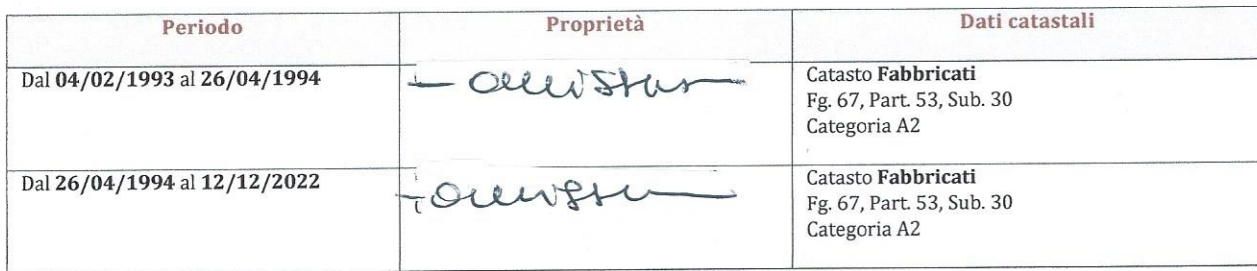 Periodo Proprietà Dati catastali
Dal 04/02/1993 al 26/04/1994 - omissis - Catasto Fabbricati
Fg. 67, Part. 53, Sub. 30
Categoria A2
Dal 26/04/1994 al 12/12/2022 - omissis - Catasto Fabbricati
Fg. 67, Part. 53, Sub. 30
Categoria A2